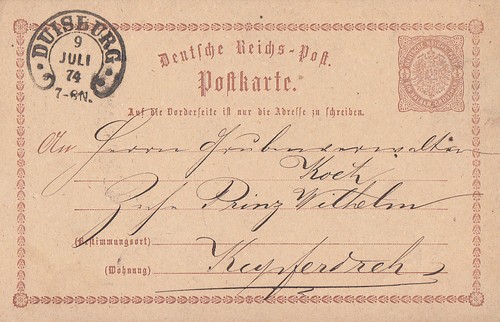 DUISBURG
9
JULI
74
7-8N.
Deutsche Reichs-Post.
Postkarte.
Auf die Vorderseite ist nur die Adresse zu schreiben.
An Herrn Grubenverwalter
Koch
Zeche Prinz Wilhelm
(Bestimmungsort)
(Wohnung) Kupferdreh